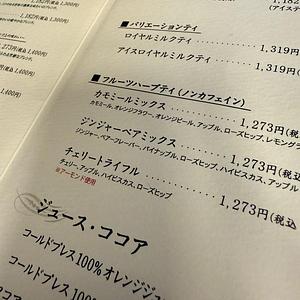 1,182円(税込 1,300円)
1,273円(税込 1,400円)
■ バリエーションティ
ロイヤルミルクティ ………… 1,319円
アイスロイヤルミルクティ ………… 1,319円
■ フルーツハーブティ (ノンカフェイン)
カモミールミックス ………… 1,273円(税込
カモミール, オレンジフラワー, オレンジピール, アップル, ローズヒップ, レモングラ
ジンジャーペアミックス ………… 1,273円(税込
ジンジャー, ペアーフレーバー, パイナップル, ローズヒップ, ハイビスカス, アップル
チェリートライフル ………… 1,273円(税込
チェリー, アップル, ハイビスカス, ローズヒップ
※アーモンド使用
ジュース・ココア
コールドプレス100%オレンジジ
コールドプレス100%